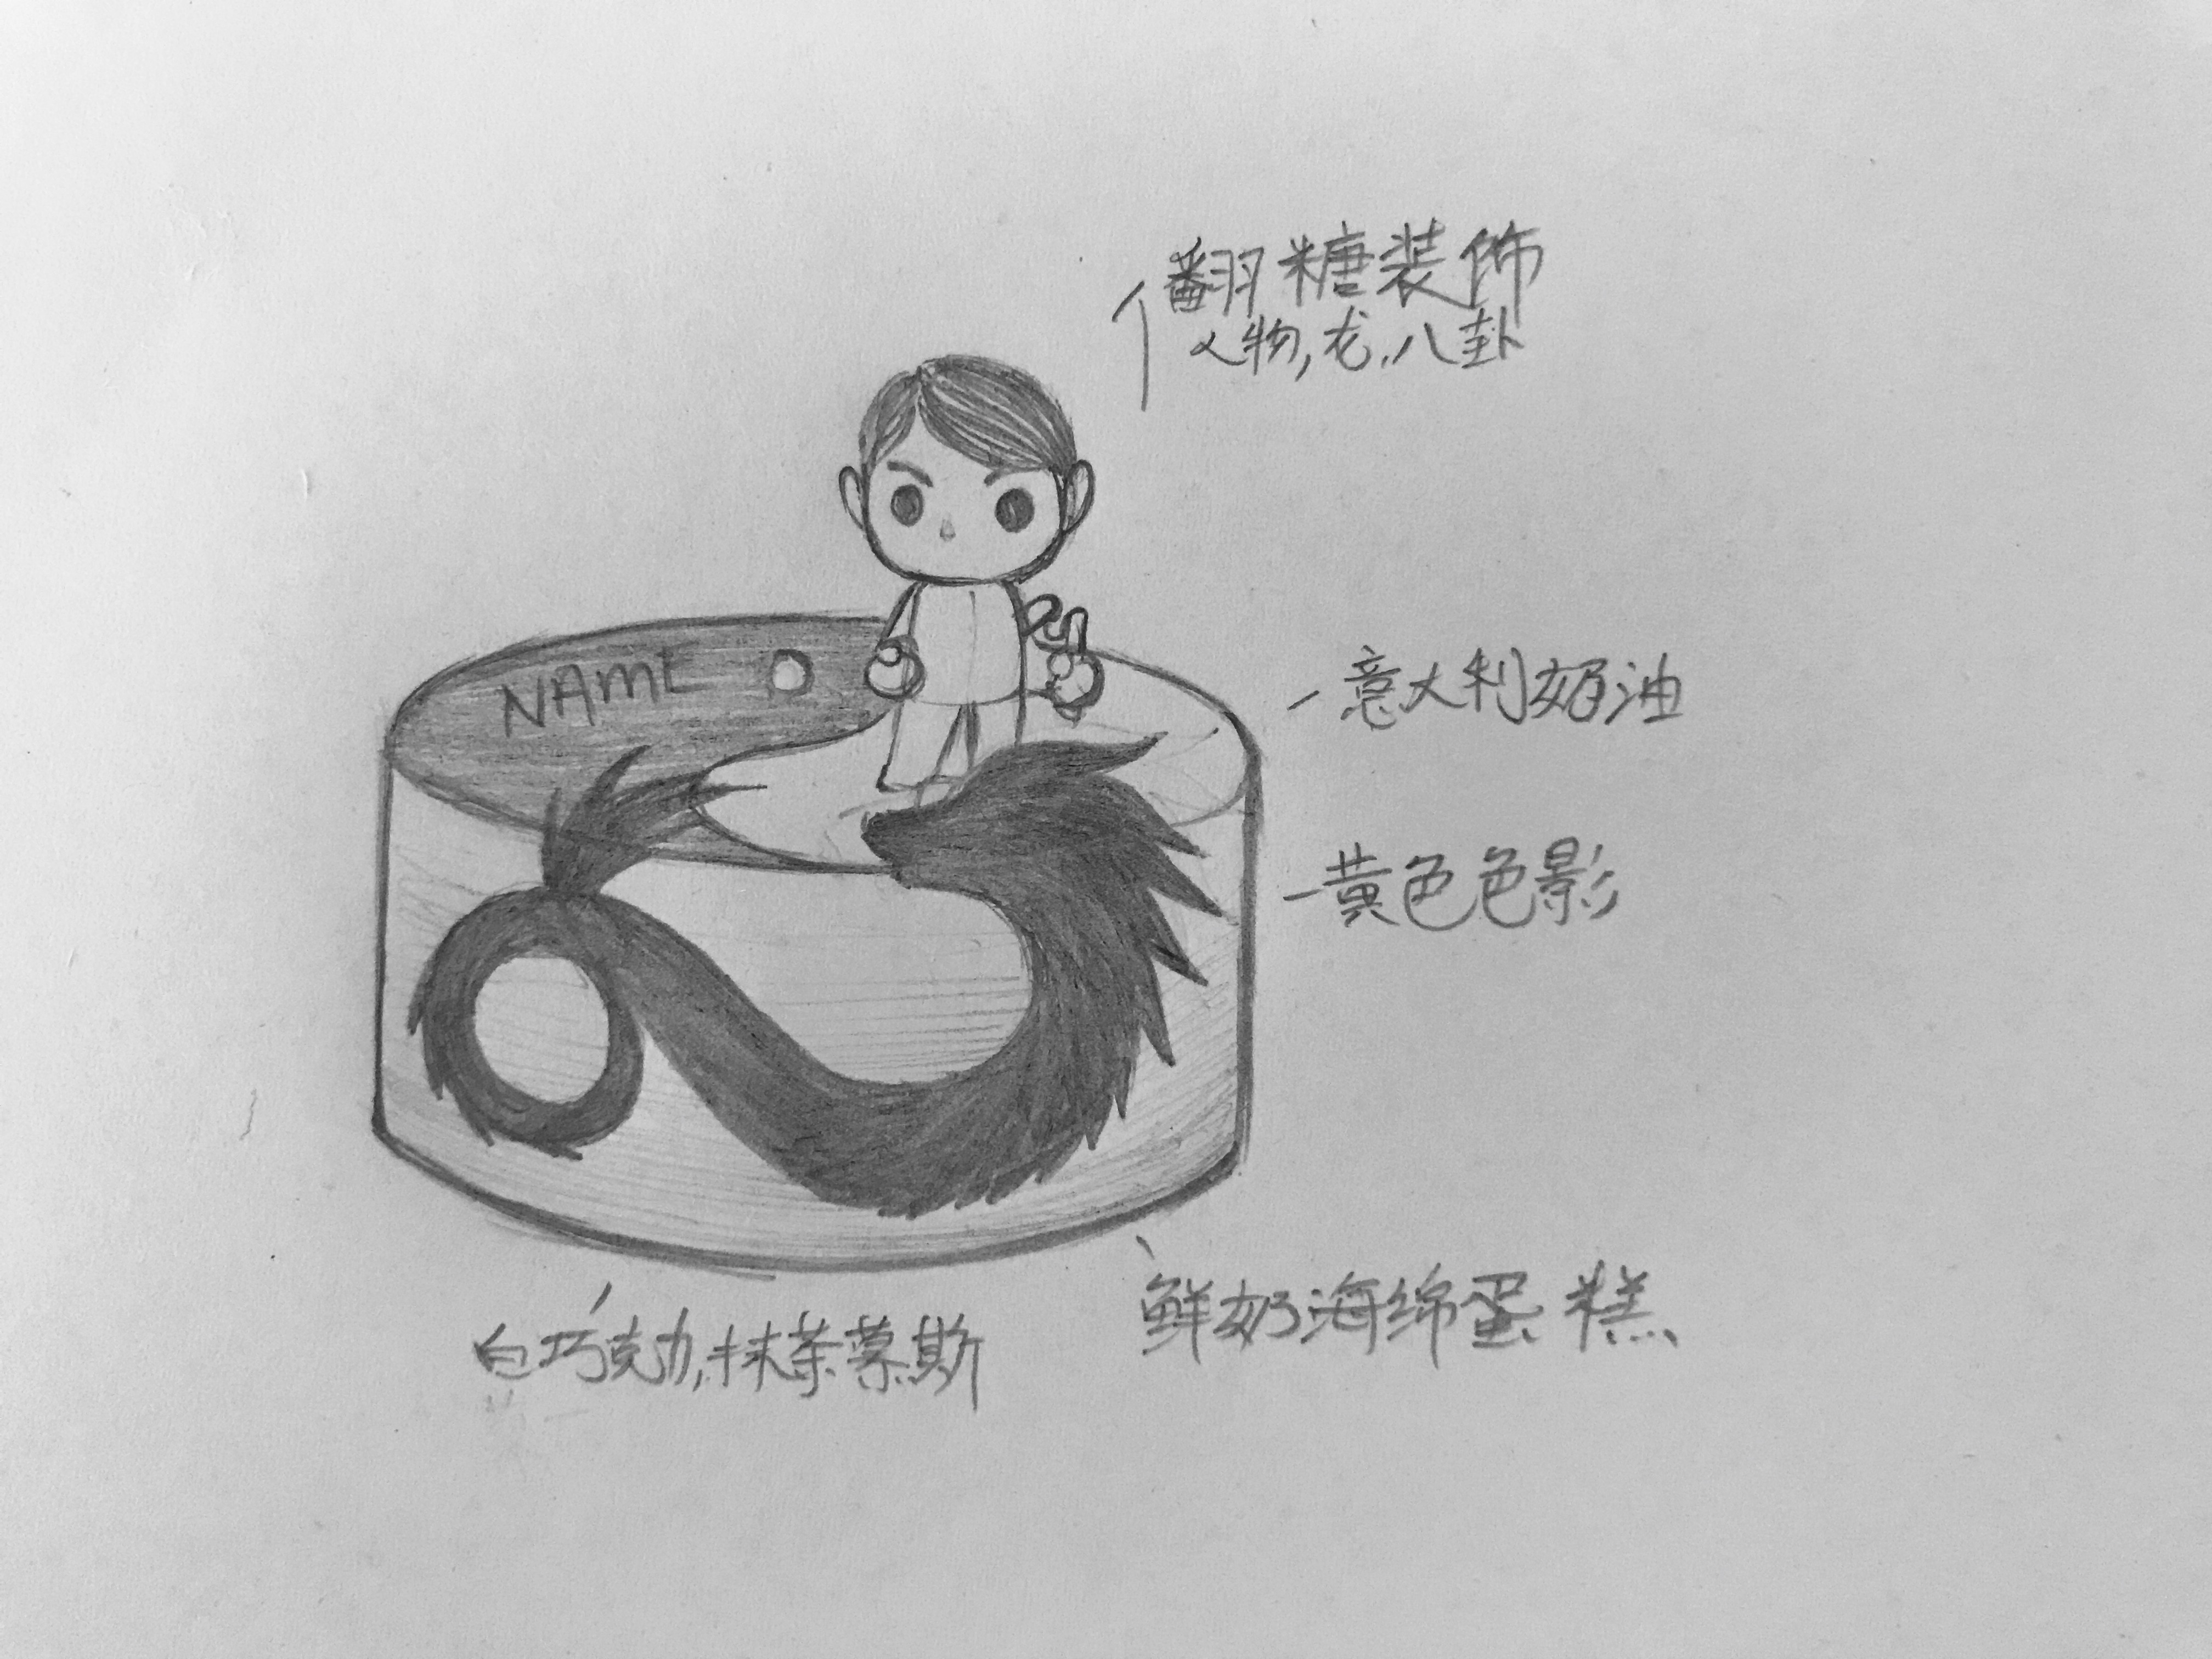 翻糖装饰
人物,龙,八卦
NAME
意大利奶油
黄色色影
鲜奶海绵蛋糕
白巧克力,抹茶慕斯